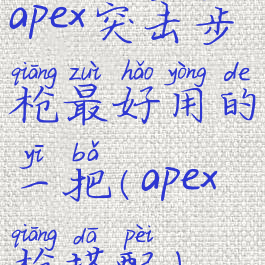 apex突击步
qiāng zuì hǎo yòng de
枪最好用的
yī bǎ
一把(apex
qiāng dā pèi
枪搭配)